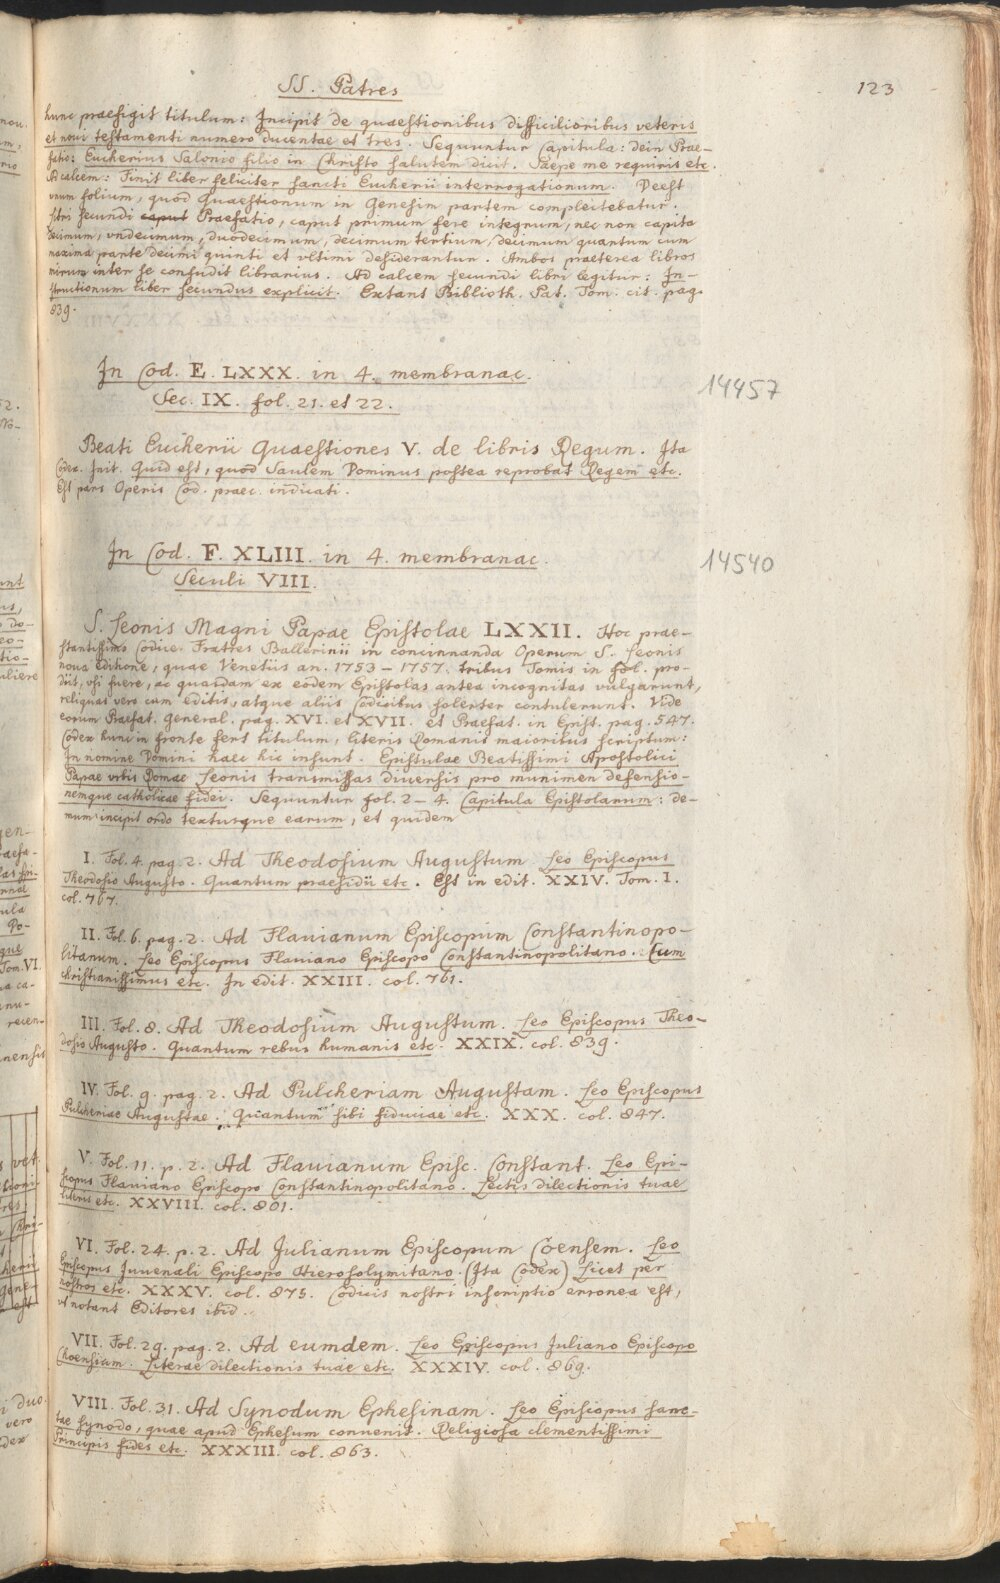 SS. Patres
123
hunc praefigit titulum: Incipit de quaestionibus difficilioribus veteris
et noui testamenti numero ducentae et tres. Sequuntur Capitula: dein Prae-
fatio: Eucherius Salonio filio in Christo salutem dicit. Saepe me requiris etc.
Ad calcem: Finit liber feliciter sancti Eucherii interrogationum. Deest
vnum folium, quod Quaestionum in Genesim partem complectebatur.
Libri secundi caput Praefatio, caput primum fere integrum, nec non capita
decimum, vndecimum, duodecimum, decimum tertium, decimum quantum cum
maxima parte decimi quinti et vltimi desiderantur. Ambos praeterea libros
mirum inter se confudit librarius. Ad calcem secundi libri legitur: In-
structionum liber secundus explicit. Extant Biblioth. Pat. Tom. cit. pag.
839.
In Cod. E. LXXX. in 4. membranac.
14457
Sec. IX. fol. 21. et 22.
Beati Eucherii Quaestiones V. de libris Regum. Ita
Codex. Init. Quid est, quod Saulem Dominus postea reprobat Regem etc.
Est pars Operis Cod. praec. indicati.
In Cod. F. XLIII. in 4. membranac.
14540
Seculi VIII.
S. Leonis Magni Papae Epistolae LXXII. Hoc prae-
stantissimo Codice Fratres Ballerinii in concinnanda Operum S. Leonis
noua editione, quae Venetiis an. 1753 - 1757. tribus Tomis in fol. pro-
diit, vsi fuere, ac quasdam ex eodem Epistolas antea incognitas vulgarunt,
reliquas vero cum editis, atque aliis Codicibus solerter contulerunt. Vide
eorum Praefat. general. pag. XVI. et XVII. et Praefat. in Epist. pag. 547.
Codex hunc in fronte fert titulum, literis Romanis maioribus scriptum:
In nomine Domini haec hic insunt. Epistulae Beatissimi Apostolici
Papae vrbis Romae Leonis transmissas diuersis pro munimen defensio-
nemque catholicae fidei. Sequuntur fol. 2 - 4. Capitula Epistolarum: de-
mum incipit ordo textusque earum, et quidem
I. Fol. 4. pag. 2. Ad Theodosium Augustum Leo Episcopus
Theodosio Augusto. Quantum praesidii etc. Est in edit. XXIV. Tom. I.
col. 767.
II. Fol. 6. pag. 2. Ad Flauianum Episcopum Constantinopo-
litanum. Leo Episcopus Flauiano Episcopo Constantinopolitano. Cum
christianissimus etc. In edit. XXIII. col. 761.
III. Fol. 8. Ad Theodosium Augustum. Leo Episcopus Theo-
dosio Augusto. Quantum rebus humanis etc. XXIX. col. 839.
IV. Fol. 9. pag. 2. Ad Pulcheriam Augustam. Leo Episcopus
Pulcheriae Augustae. Quantum sibi fiduciae etc. XXX. col. 847.
V. Fol. 11. p. 2. Ad Flauianum Episc. Constant. Leo Epi-
scopus Flauiano Episcopo Constantinopolitano. Lectis dilectionis tuae
literis etc. XXVIII. col. 801.
VI. Fol. 24. p. 2. Ad Julianum Episcopum Coensem. Leo
Episcopus Juuenali Episcopo Hierosolymitano. (Ita Codex) Licet per
nostros etc. XXXV. col. 875. Codicis nostri inscriptio erronea est,
vt notant Editores ibid.
VII. Fol. 29. pag. 2. Ad eumdem. Leo Episcopus Juliano Episcopo
Choensium. Literae dilectionis tuae etc. XXXIV. col. 869.
VIII. Fol. 31. Ad Synodum Ephesinam. Leo Episcopus sanc-
tae synodo, quae apud Ephesum conuenit. Religiosa clementissimi
Principis fides etc. XXXIII. col. 863.